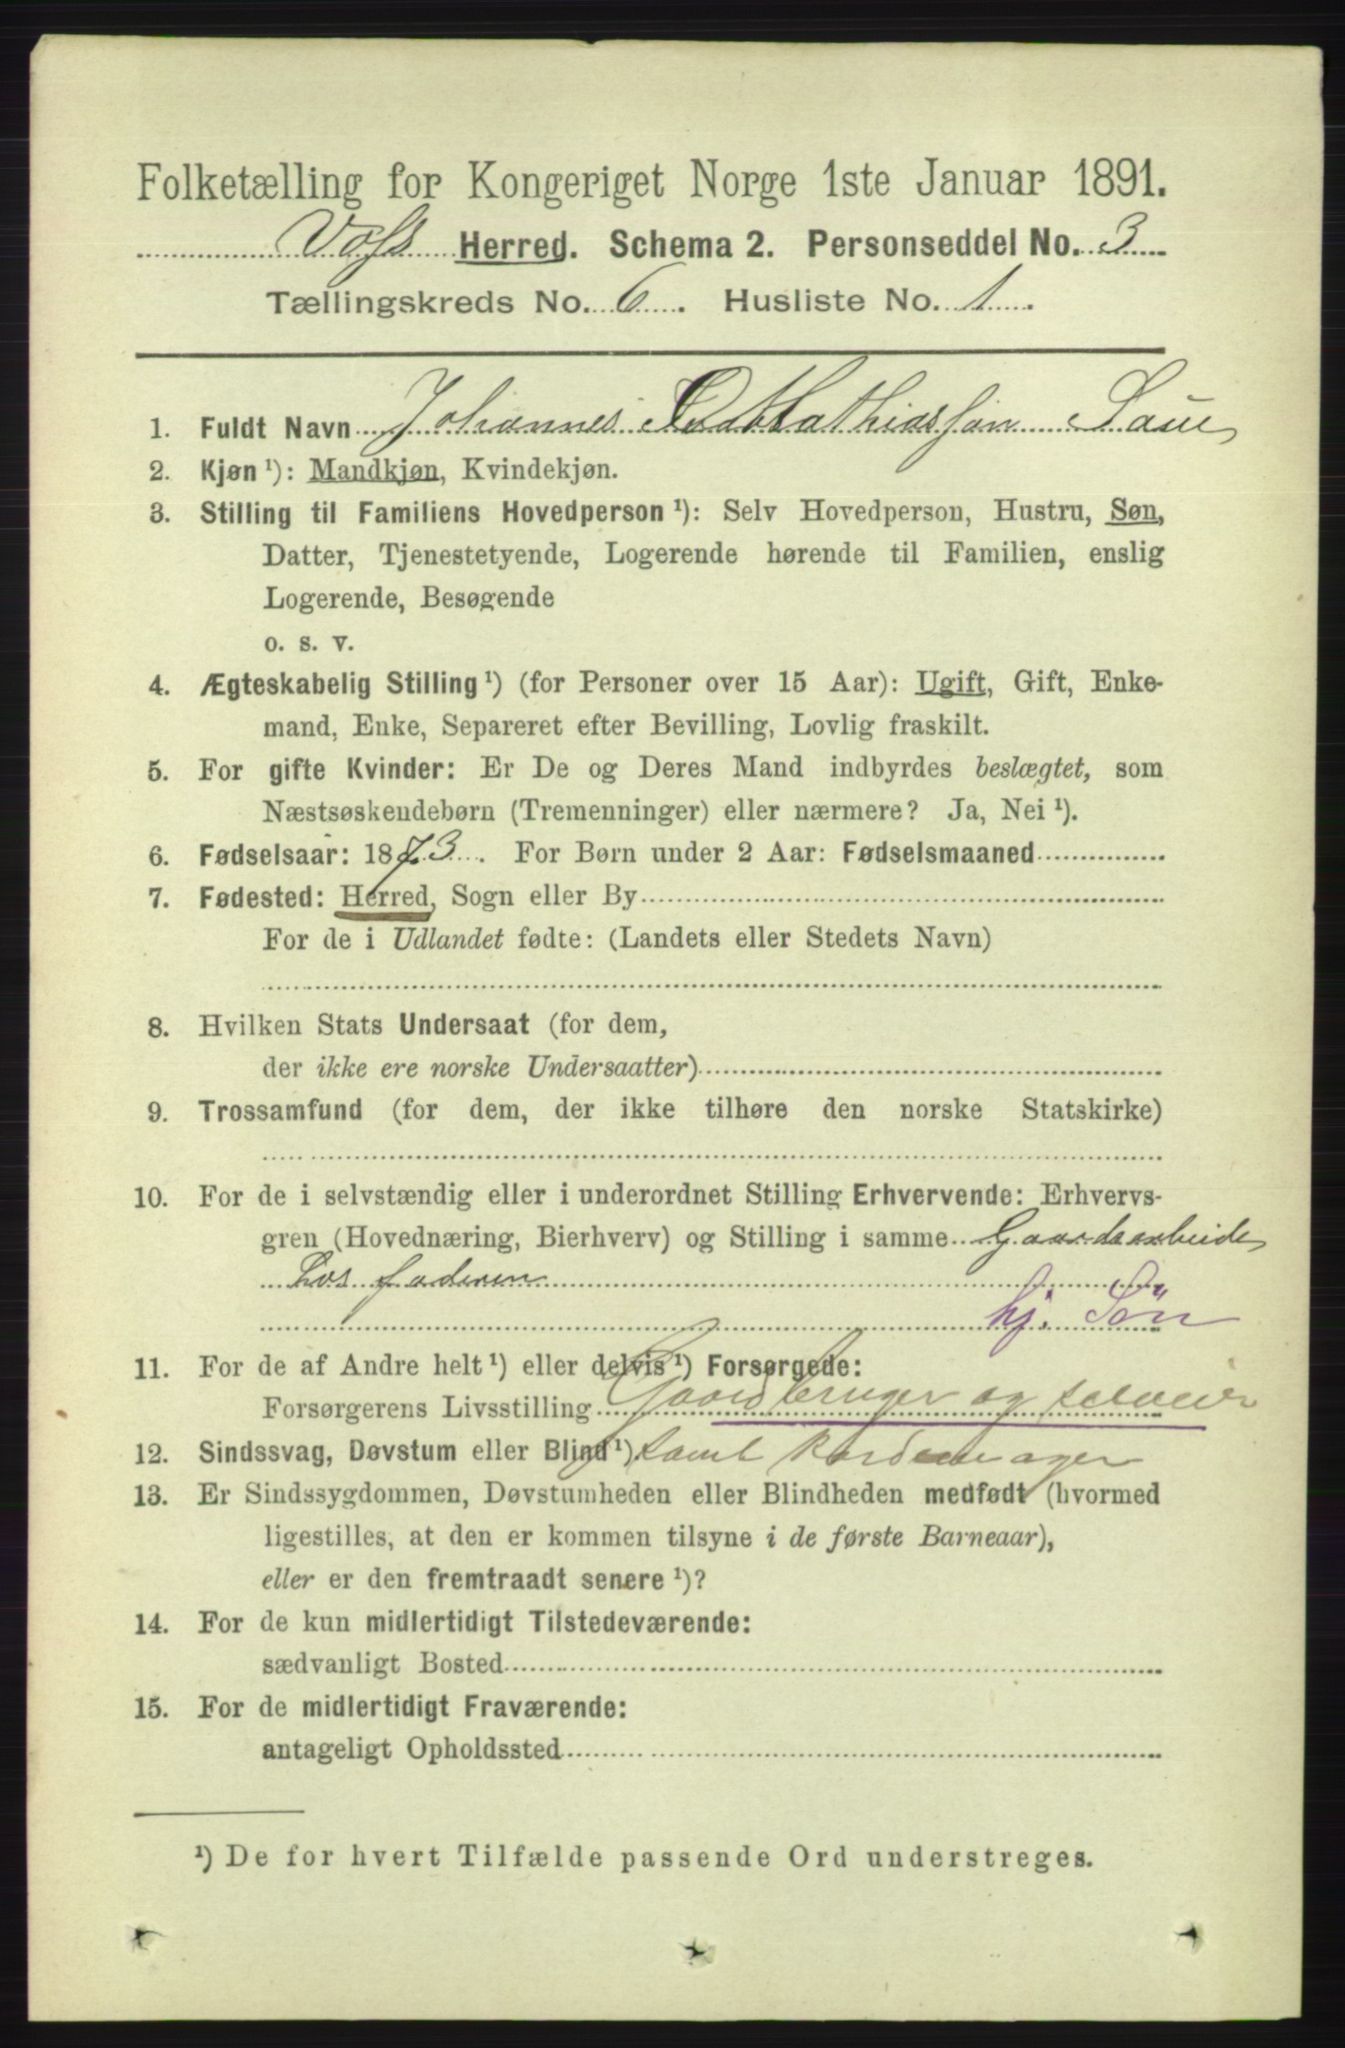 Folketælling for Kongeriget Norge 1ste Januar 1891.
Voss Herred. Schema 2. Personseddel No. 3
Tællingskreds No. 6. Husliste No. 1.
1. Fuldt Navn Johannes Mathiassøn Saue
2. Kjøn ¹): Mandkjøn, Kvindekjøn.
3. Stilling til Familiens Hovedperson ¹): Selv Hovedperson, Hustru, Søn,
Datter, Tjenestetyende, Logerende hørende til Familien, enslig
Logerende, Besøgende
o. s. v.
4. Ægteskabelig Stilling ¹) (for Personer over 15 Aar): Ugift, Gift, Enke-
mand, Enke, Separeret efter Bevilling, Lovlig fraskilt.
5. For gifte Kvinder: Er De og Deres Mand indbyrdes beslægtet, som
Næstsøskendebørn (Tremenninger) eller nærmere? Ja, Nei ¹).
6. Fødselsaar: 1873. For Børn under 2 Aar: Fødselsmaaned
7. Fødested: Herred, Sogn eller By
For de i Udlandet fødte: (Landets eller Stedets Navn)
8. Hvilken Stats Undersaat (for dem,
der ikke ere norske Undersaatter)
9. Trossamfund (for dem, der ikke tilhøre den norske Statskirke)
10. For de i selvstændig eller i underordnet Stilling Erhvervende: Erhvervs-
gren (Hovednæring, Bierhverv) og Stilling i samme Gaardsarbeide
hos faderen
hj. Søn
11. For de af Andre helt ¹) eller delvis ¹) Forsørgede:
Forsørgerens Livsstilling Gaardbruger og selveier
12. Sindssvag, Døvstum eller Blind ¹). samt
13. Er Sindssygdommen, Døvstumheden eller Blindheden medfødt (hvormed
ligestilles, at den er kommen tilsyne i de første Barneaar),
eller er den fremtraadt senere ¹)?
14. For de kun midlertidigt Tilstedeværende:
sædvanligt Bosted
15. For de midlertidigt Fraværende:
antageligt Opholdssted
¹) De for hvert Tilfælde passende Ord understreges.